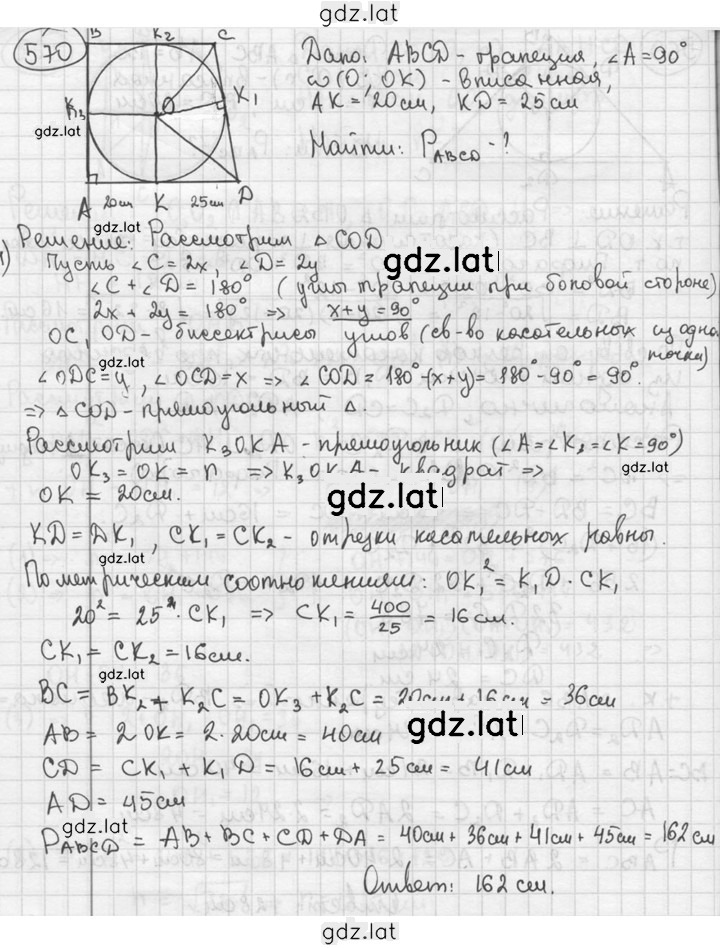 gdz.lat
570
B K₂ C
Дано: ABCD - трапеция, ∠A = 90°
ω(O; OK) - вписанная,
AK = 20см, KD = 25см
Найти: P_ABCD - ?
K₃ O K₁
gdz.lat
A 20см K 25см D
gdz.lat
Решение: Рассмотрим △ COD
1) Пусть ∠C = 2x, ∠D = 2y
gdz.lat
∠C + ∠D = 180° (углы трапеции при боковой стороне)
2x + 2y = 180° => x + y = 90°
OC, OD - биссектрисы углов (св-во касательных из одной
точки)
gdz.lat
∠ODC = y, ∠OCD = x => ∠COD = 180° - (x+y) = 180° - 90° = 90°.
=> △ COD - прямоугольный △
Рассмотрим K₃OKA - прямоугольник (∠A = ∠K₃ = ∠K = 90°)
OK₃ = OK = r => K₃OKA - квадрат =>
gdz.lat
OK = 20см.
gdz.lat
KD = DK₁, CK₁ = CK₂ - отрезки касательных равны.
gdz.lat
По метрическим соотношениям: OK₁² = K₁D · CK₁
20² = 25 · CK₁ => CK₁ = 400/25 = 16см.
CK₁ = CK₂ = 16см.
gdz.lat
BC = BK₂ + K₂C = OK₃ + K₂C = 20см + 16см = 36см
AB = 2OK = 2·20см = 40см
gdz.lat
CD = CK₁ + K₁D = 16см + 25см = 41см
AD = 45см
gdz.lat
P_ABCD = AB + BC + CD + DA = 40см + 36см + 41см + 45см = 162см
Ответ: 162 см.
gdz.lat